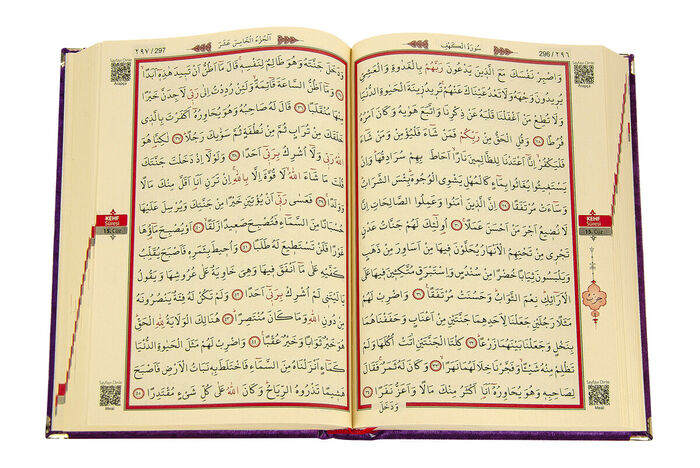 سُورَةُ الْكَهْفِ
296 / ٢٩٦
وَاصْبِرْ نَفْسَكَ مَعَ الَّذِينَ يَدْعُونَ رَبَّهُمْ بِالْغَدٰوةِ وَالْعَشِيِّ
يُرِيدُونَ وَجْهَهُ وَلَا تَعْدُ عَيْنَاكَ عَنْهُمْ تُرِيدُ زِينَةَ الْحَيٰوةِ الدُّنْيَا
وَلَا تُطِعْ مَنْ اَغْفَلْنَا قَلْبَهُ عَنْ ذِكْرِنَا وَاتَّبَعَ هَوٰيهُ وَكَانَ اَمْرُهُ
فُرُطًا ﴿٢٨﴾ وَقُلِ الْحَقُّ مِنْ رَبِّكُمْ فَمَنْ شَٓاءَ فَلْيُؤْمِنْ وَمَنْ شَٓاءَ
فَلْيَكْفُرْ اِنَّٓا اَعْتَدْنَا لِلظَّالِمِينَ نَارًا اَحَاطَ بِهِمْ سُرَادِقُهَا وَاِنْ
يَسْتَغِيثُوا يُغَاثُوا بِمَٓاءٍ كَالْمُهْلِ يَشْوِي الْوُجُوهَ بِئْسَ الشَّرَابُ
وَسَٓاءَتْ مُرْتَفَقًا ﴿٢٩﴾ اِنَّ الَّذِينَ اٰمَنُوا وَعَمِلُوا الصَّالِحَاتِ اِنَّا
لَا نُضِيعُ اَجْرَ مَنْ اَحْسَنَ عَمَلًا ﴿٣٠﴾ اُو۬لٰٓئِكَ لَهُمْ جَنَّاتُ عَدْنٍ
تَجْرِي مِنْ تَحْتِهِمُ الْاَنْهَارُ يُحَلَّوْنَ فِيهَا مِنْ اَسَاوِرَ مِنْ ذَهَبٍ
وَيَلْبَسُونَ ثِيَابًا خُضْرًا مِنْ سُنْدُسٍ وَاِسْتَبْرَقٍ مُتَّكِـِٔينَ فِيهَا عَلَى
الْاَرَٓائِكِ نِعْمَ الثَّوَابُ وَحَسُنَتْ مُرْتَفَقًا ﴿٣١﴾ وَاضْرِبْ لَهُمْ
مَثَلًا رَجُلَيْنِ جَعَلْنَا لِاَحَدِهِمَا جَنَّتَيْنِ مِنْ اَعْنَابٍ وَحَفَفْنَاهُمَا
بِنَخْلٍ وَجَعَلْنَا بَيْنَهُمَا زَرْعًا ﴿٣٢﴾ كِلْتَا الْجَنَّتَيْنِ اٰتَتْ اُكُلَهَا وَلَمْ
تَظْلِمْ مِنْهُ شَيْـًٔا وَفَجَّرْنَا خِلَالَهُمَا نَهَرًا ﴿٣٣﴾ وَكَانَ لَهُ ثَمَرٌ فَقَالَ
لِصَاحِبِهِ وَهُوَ يُحَاوِرُهُ اَنَا۬ اَكْثَرُ مِنْكَ مَالًا وَاَعَزُّ نَفَرًا ﴿٣٤﴾
وَدَخَلَ
Sayfayı Dinle
Arapça
KEHF
Sûresi
15. Cüz
حزب
Sayfayı Dinle
Meal
اَلْجُزْءُ الْخَامِسَ عَشَرَ
٢٩٧ / 297
وَدَخَلَ جَنَّتَهُ وَهُوَ ظَالِمٌ لِنَفْسِهِ قَالَ مَٓا اَظُنُّ اَنْ تَبِيدَ هٰذِهِ اَبَدًا
﴿٣٥﴾ وَمَٓا اَظُنُّ السَّاعَةَ قَٓائِمَةً وَلَئِنْ رُدِدْتُ اِلٰى رَبِّي لَاَجِدَنَّ خَيْرًا
مِنْهَا مُنْقَلَبًا ﴿٣٦﴾ قَالَ لَهُ صَاحِبُهُ وَهُوَ يُحَاوِرُهُ اَكَفَرْتَ بِالَّذِي
خَلَقَكَ مِنْ تُرَابٍ ثُمَّ مِنْ نُطْفَةٍ ثُمَّ سَوّٰيكَ رَجُلًا ﴿٣٧﴾ لٰكِنَّا۬ هُوَ
اللّٰهُ رَبِّي وَلَٓا اُشْرِكُ بِرَبِّي اَحَدًا ﴿٣٨﴾ وَلَوْلَٓا اِذْ دَخَلْتَ جَنَّتَكَ
قُلْتَ مَا شَٓاءَ اللّٰهُ لَا قُوَّةَ اِلَّا بِاللّٰهِ اِنْ تَرَنِ اَنَا۬ اَقَلَّ مِنْكَ مَالًا
وَوَلَدًا ﴿٣٩﴾ فَعَسٰى رَبِّي اَنْ يُؤْتِيَنِ خَيْرًا مِنْ جَنَّتِكَ وَيُرْسِلَ عَلَيْهَا
حُسْبَانًا مِنَ السَّمَٓاءِ فَتُصْبِحَ صَعِيدًا زَلَقًا ﴿٤٠﴾ اَوْ يُصْبِحَ مَٓاؤُ۬هَا
غَوْرًا فَلَنْ تَسْتَطِيعَ لَهُ طَلَبًا ﴿٤١﴾ وَاُحِيطَ بِثَمَرِهِ فَاَصْبَحَ يُقَلِّبُ
كَفَّيْهِ عَلٰى مَٓا اَنْفَقَ فِيهَا وَهِيَ خَاوِيَةٌ عَلٰى عُرُوشِهَا وَيَقُولُ
يَا لَيْتَنِي لَمْ اُشْرِكْ بِرَبِّي اَحَدًا ﴿٤٢﴾ وَلَمْ تَكُنْ لَهُ فِئَةٌ يَنْصُرُونَهُ
مِنْ دُونِ اللّٰهِ وَمَا كَانَ مُنْتَصِرًا ﴿٤٣﴾ هُنَالِكَ الْوَلَايَةُ لِلّٰهِ الْحَقِّ
هُوَ خَيْرٌ ثَوَابًا وَخَيْرٌ عُقْبًا ﴿٤٤﴾ وَاضْرِبْ لَهُمْ مَثَلَ الْحَيٰوةِ الدُّنْيَا
كَمَٓاءٍ اَنْزَلْنَاهُ مِنَ السَّمَٓاءِ فَاخْتَلَطَ بِهِ نَبَاتُ الْاَرْضِ فَاَصْبَحَ
هَشِيمًا تَذْرُوهُ الرِّيَاحُ وَكَانَ اللّٰهُ عَلٰى كُلِّ شَيْءٍ مُقْتَدِرًا ﴿٤٥﴾
Sayfayı Dinle
Arapça
KEHF
Sûresi
15. Cüz
Sayfayı Dinle
Meal